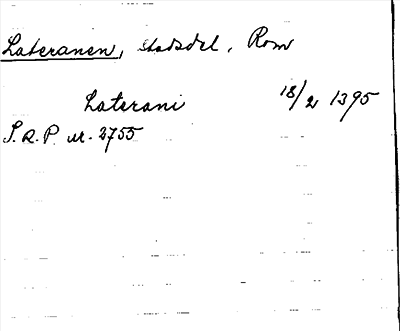 Lateranen, stadsdel, Rom
Laterani 18/2 1395
S.R.P. nr. 2755